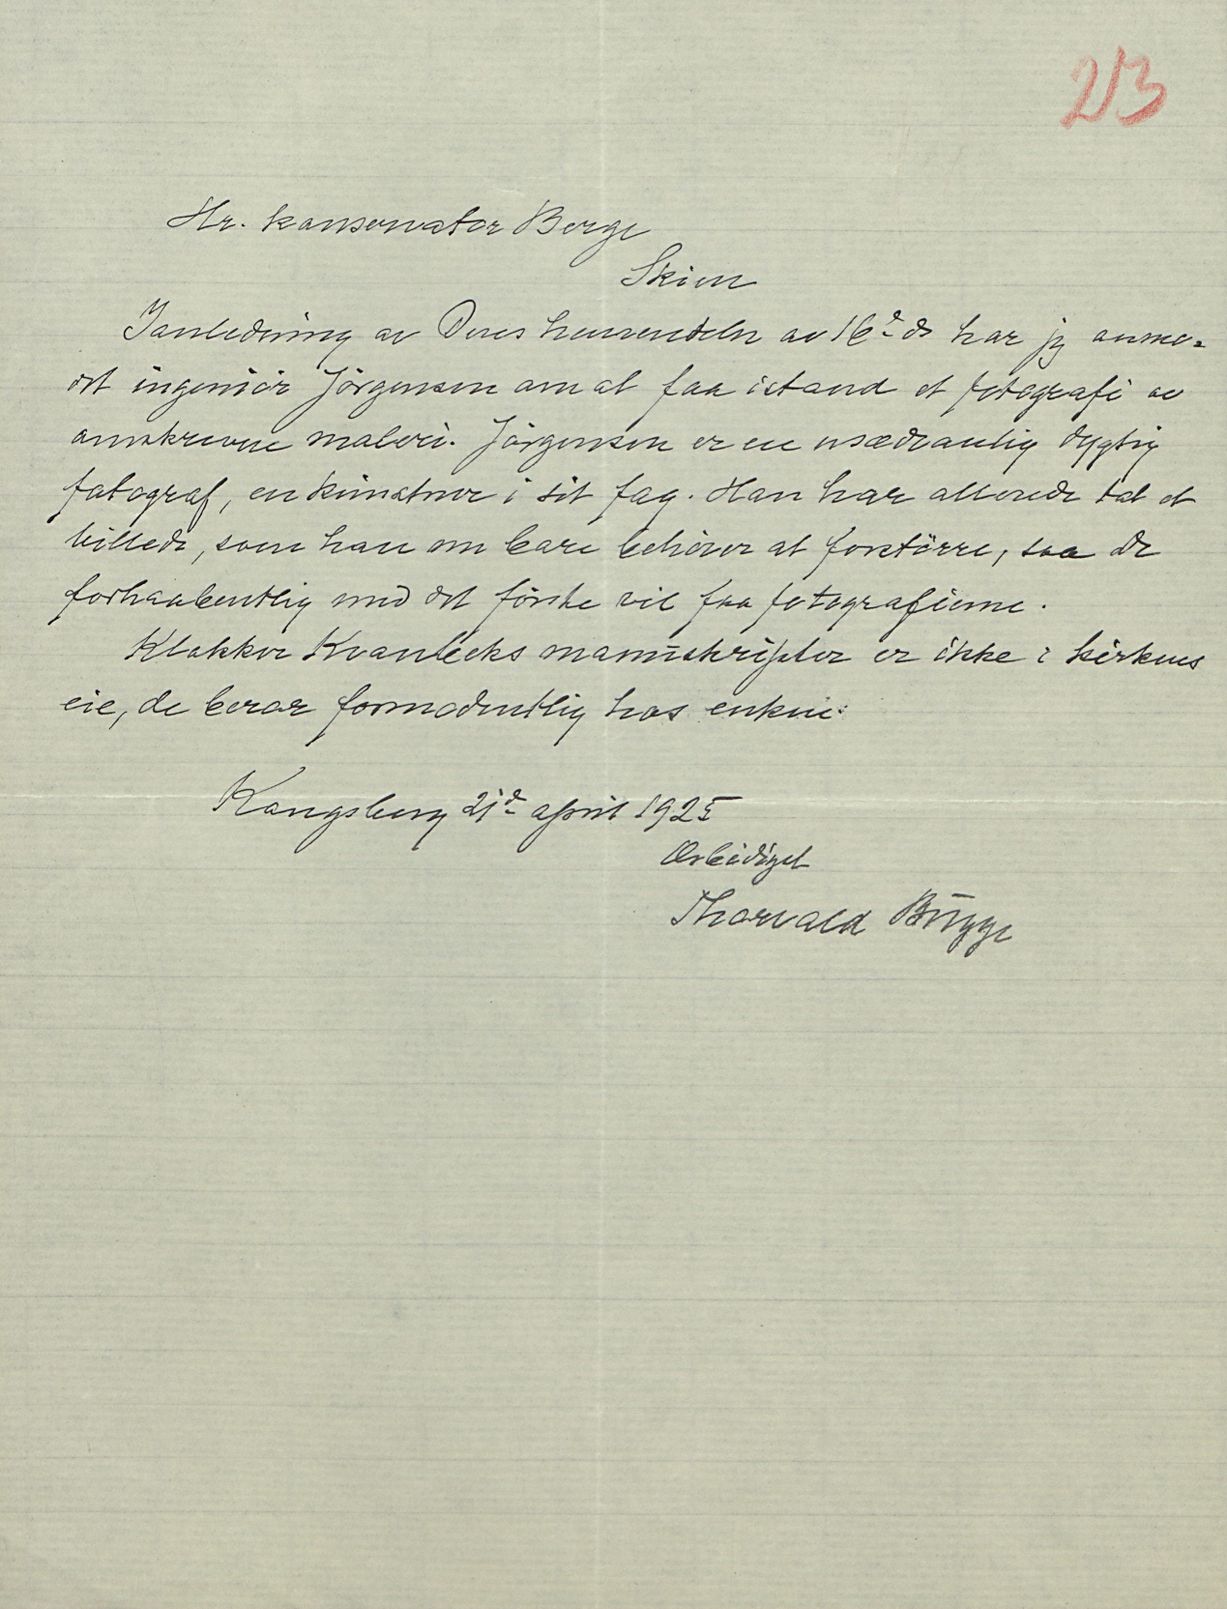 213
Hr. konservator Berge
Skien
Ianledning av Deres henvendeln av 16de ds har jeg anmo-
det ingeniör Jörgensen om at faa istand et fotografi av
omskrevne maleri. Jörgensen er en usædvanlig dygtig
fotograf, en kunstner i sit fag. Han har allerede tat et
billede, som han nu bare behöver at forstörre, saa De
forhaabentlig med det förste vil faa fotografierne.
Klokker Kvanbeks manuskripter er ikke i kirkens
eie, de beror formodentlig hos enken.
Kongsberg 21de april 1925
Ærbödigst
Thorvald Bugge